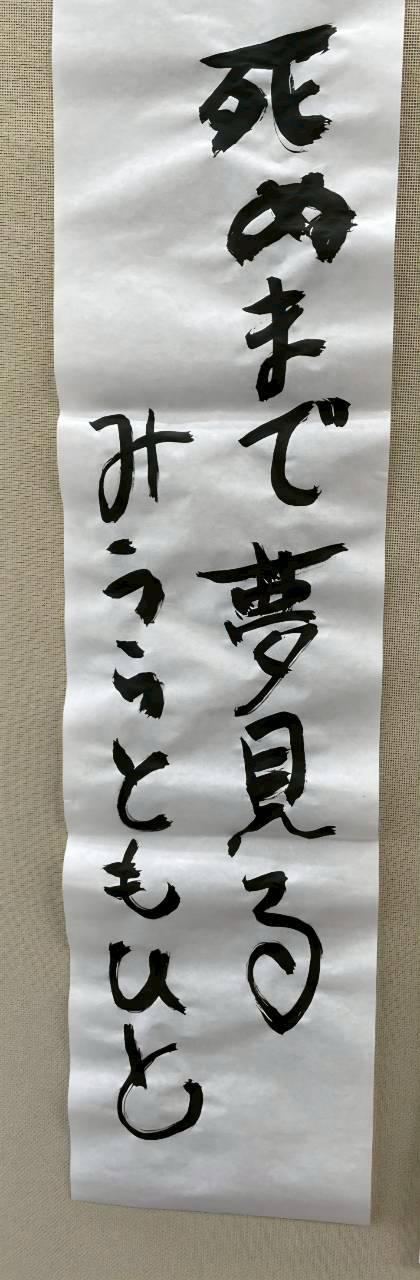 死ぬまで夢見る
みうらともひと